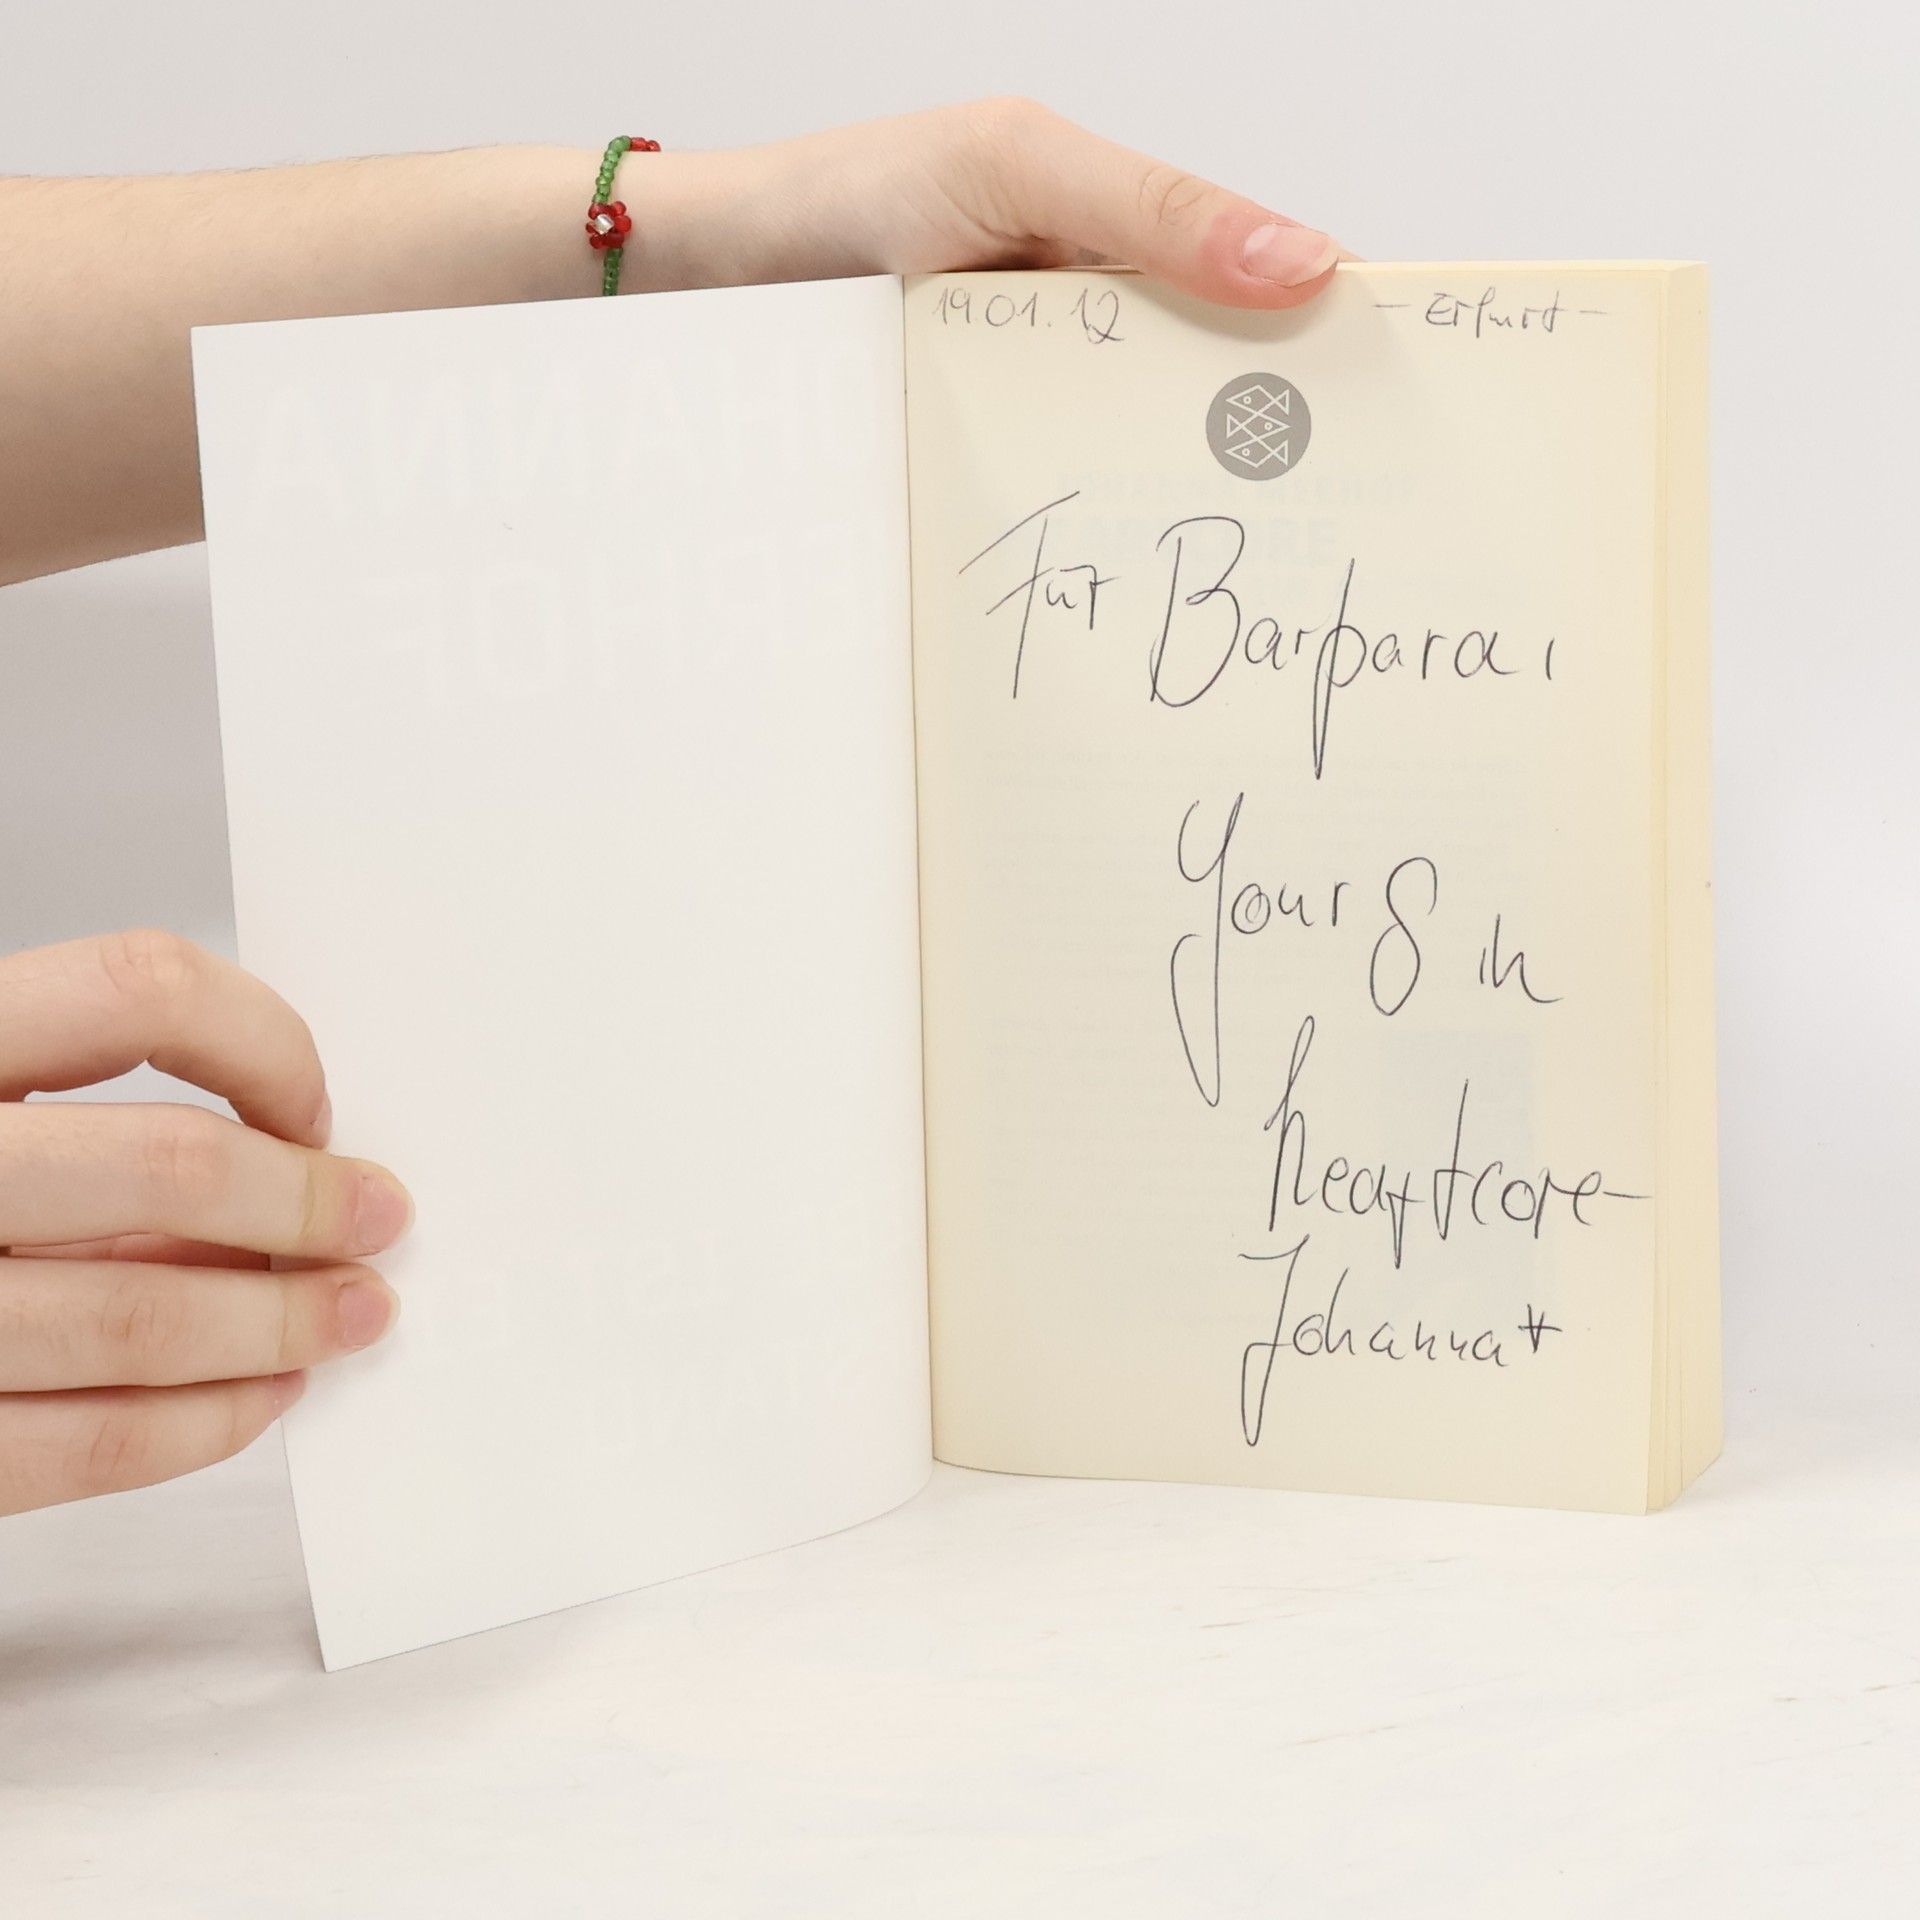 19.01.12 – Erfurt –
Für Barbara,
Yours in
heartcore –
Johanna *